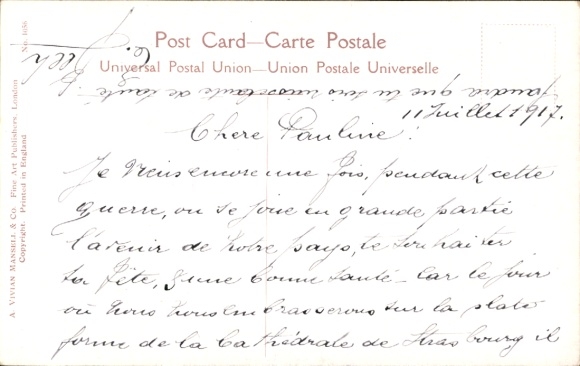 Post Card—Carte Postale
Universal Postal Union—Union Postale Universelle
11 Juillet 1917.
Chere Pauline!
Je viens encore une fois, pendant cette
guerre, ou se joue en grande partie
l'avenir de notre pays, te souhaiter
ta fête, & une bonne santé — Car le jour
où nous nous embrasserons sur la plate
forme de la Cathédrale de Strasbourg, il
faudra que tu sois de santé.
A. VIVIAN MANSELL & CO. Fine Art Publishers, London
Copyright. Printed in England